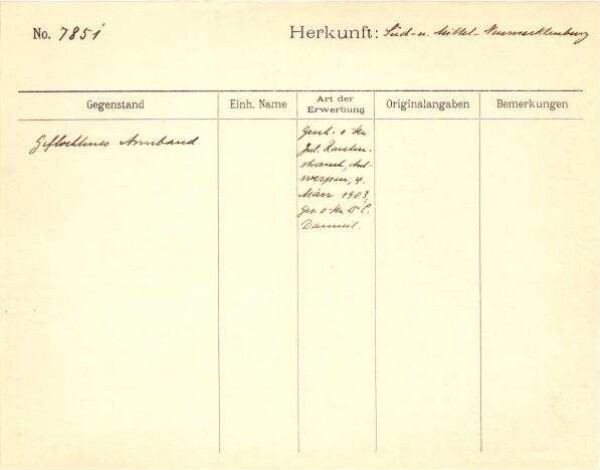 No. 7851
Herkunft: Süd- u. Mittel-Neumecklenburg
Gegenstand
Einh. Name
Art der Erwerbung
Originalangaben
Bemerkungen
Geflochtenes Armband
Gesch. v. Hr.
Jul. Rauten-
strauch, Ant-
werpen, 4.
März 1908,
ges. v. Hr.
Damm